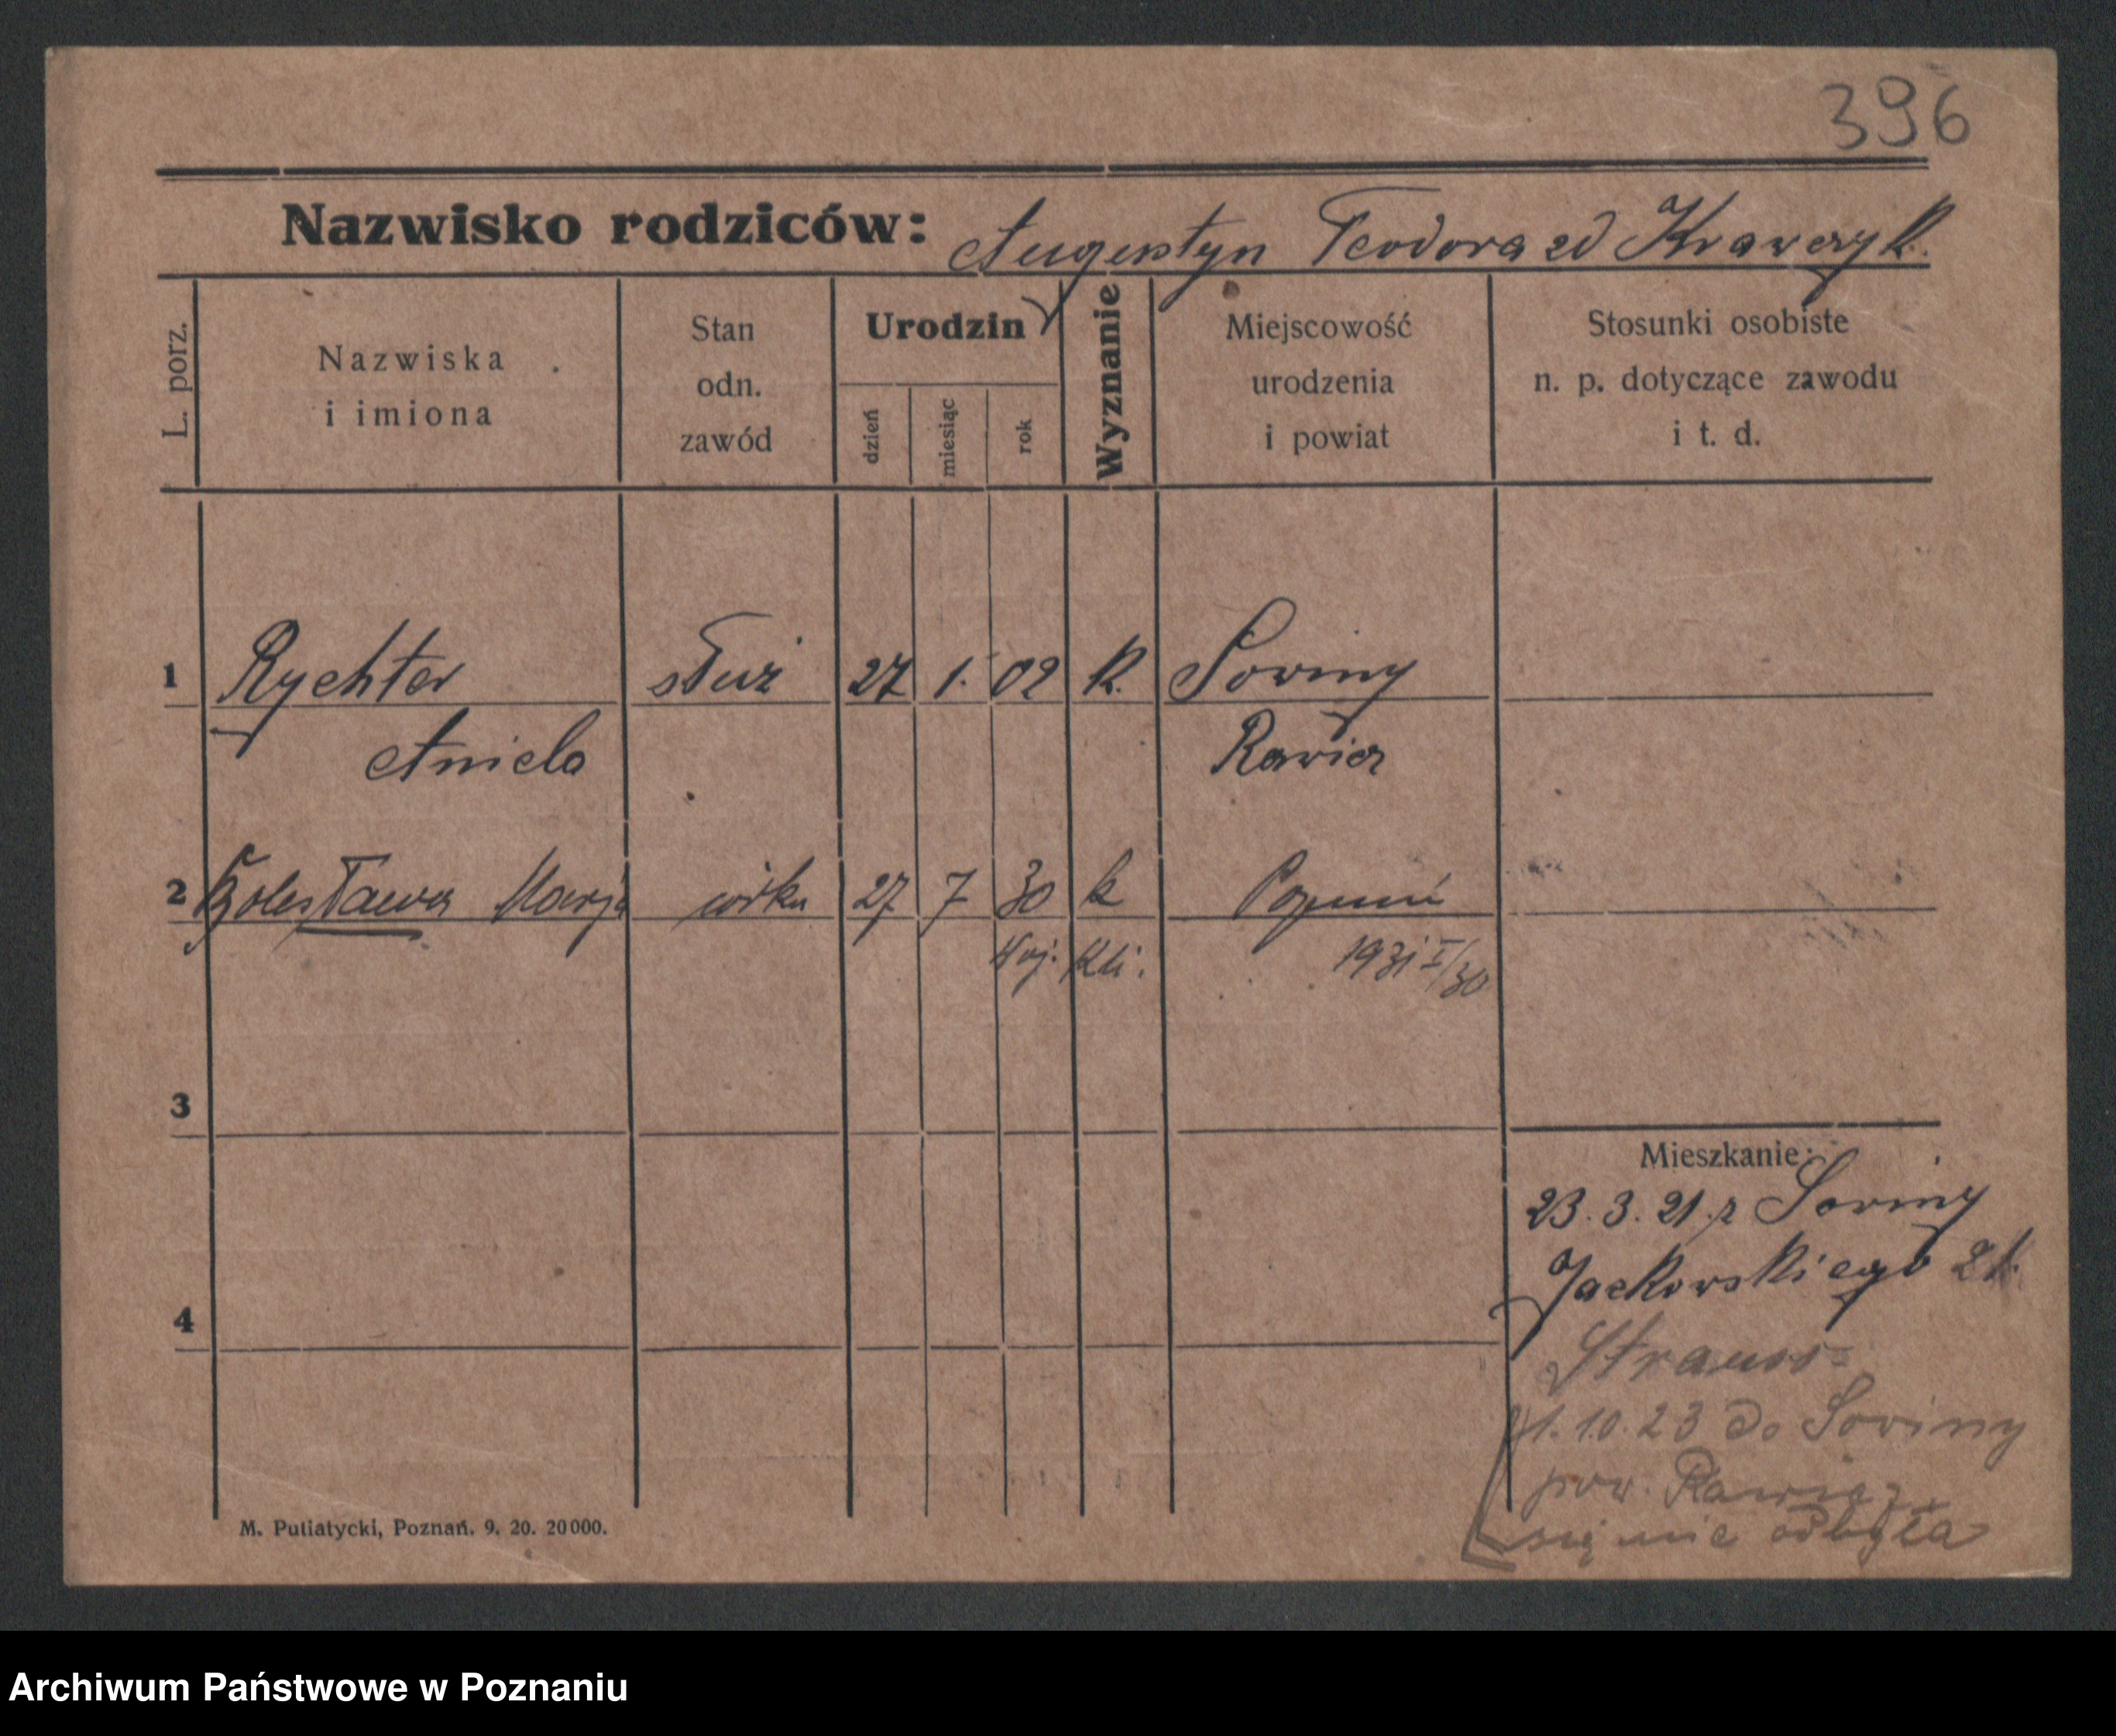 396
Nazwisko rodziców: Augustyn Teodora zd Krawczyk.
L. porz.
Nazwiska
i imiona
Stan
odn.
zawód
Urodzin
dzień
miesiąc
rok
Wyznanie
Miejscowość
urodzenia
i powiat
Stosunki osobiste
n. p. dotyczące zawodu
i t. d.
1 Rychter służ 27 1. 02 k. Sowiny
Aniela Rawicz
2 Bolesława Marja córka 27 7 30 k Poznań
1931 I/30
3
4
Mieszkanie:
23. 3. 21. z Sowiny
Jackowskiego 21.
Strauss
1. 10. 23 do Sowiny
pow. Rawicz
się nie odbyła
M. Putiatycki, Poznań. 9. 20. 20000.
Archiwum Państwowe w Poznaniu